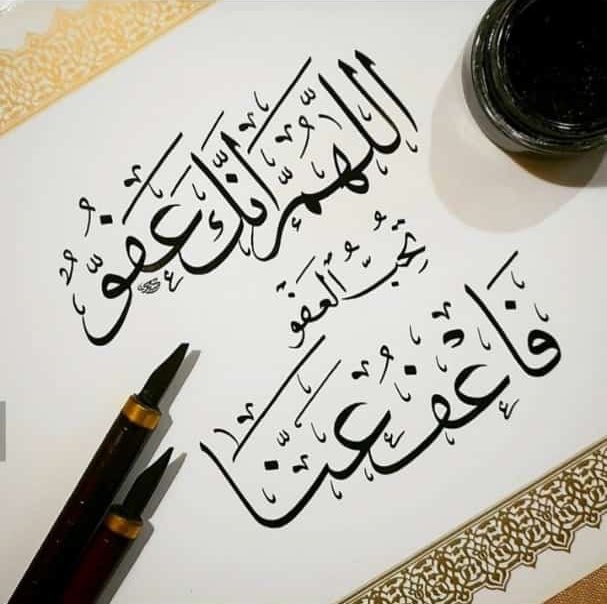 اللّٰهُمَّ إِنَّكَ عَفُوٌّ
تُحِبُّ ٱلْعَفْوَ
فَاعْفُ عَنَّا